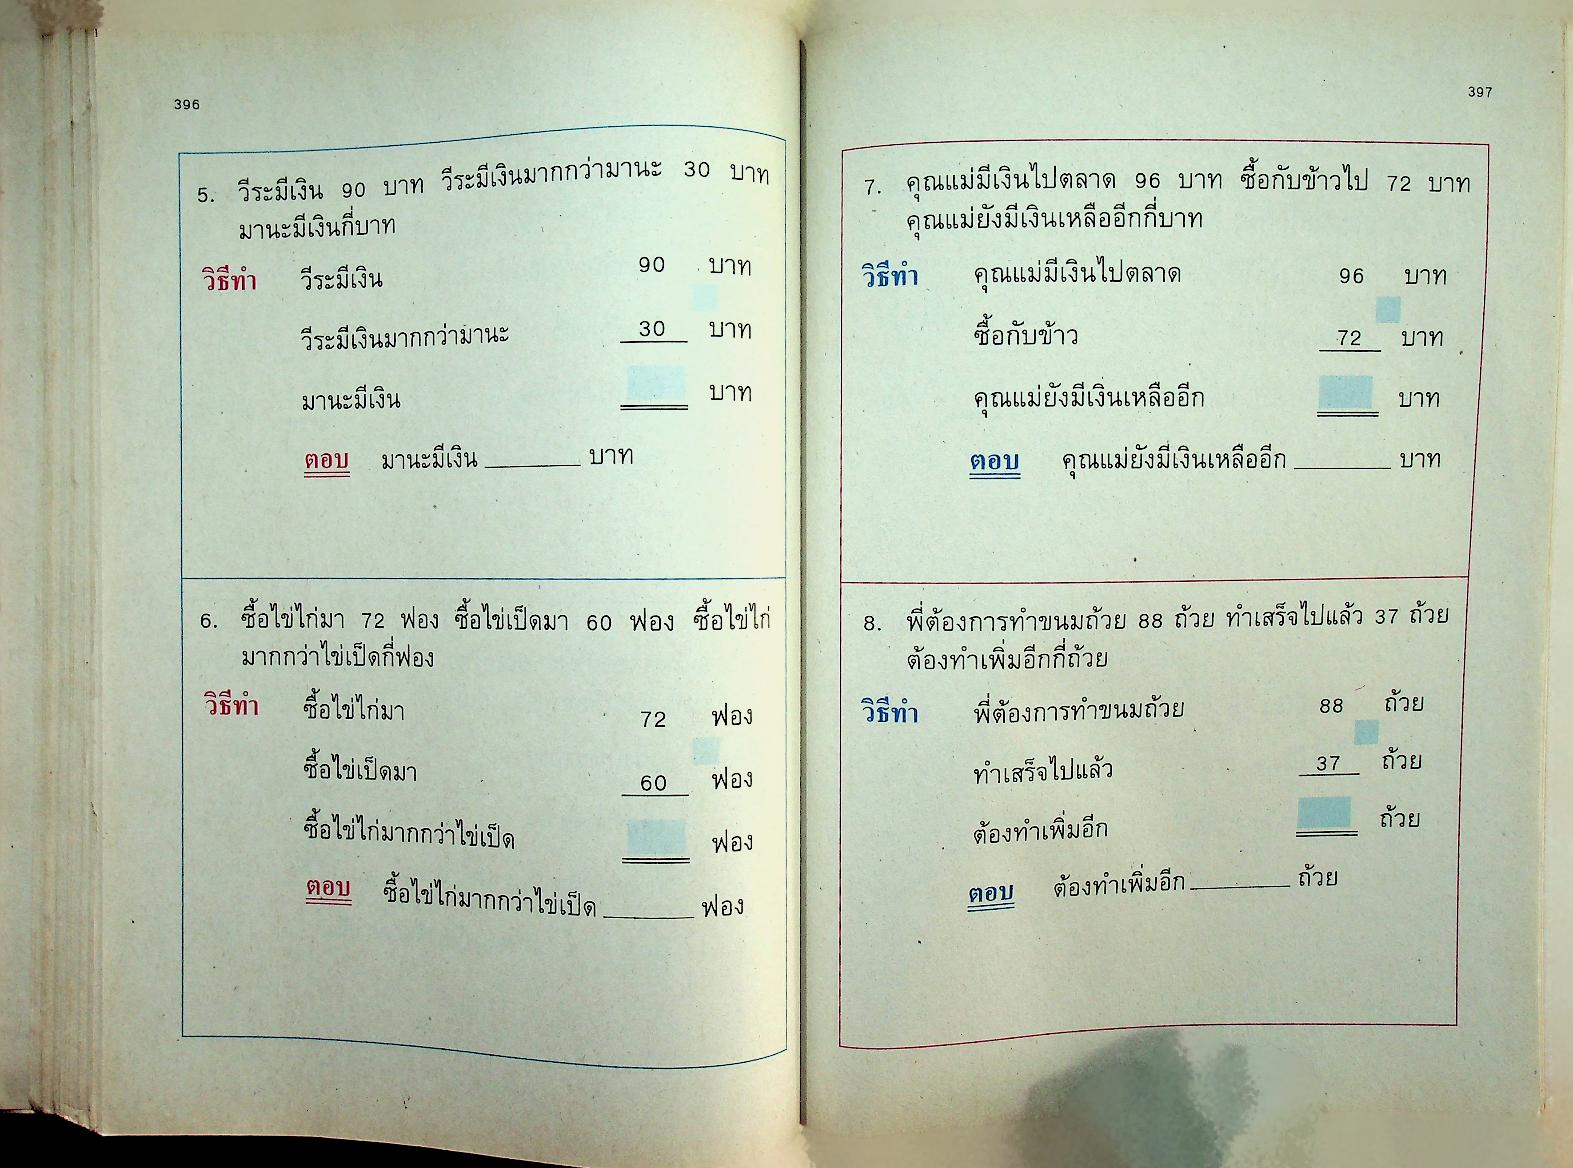 396
5. วีระมีเงิน 90 บาท วีระมีเงินมากกว่ามานะ 30 บาท
มานะมีเงินกี่บาท
วิธีทำ วีระมีเงิน 90 บาท
วีระมีเงินมากกว่ามานะ 30 บาท
มานะมีเงิน บาท
ตอบ มานะมีเงิน บาท
6. ซื้อไข่ไก่มา 72 ฟอง ซื้อไข่เป็ดมา 60 ฟอง ซื้อไข่ไก่
มากกว่าไข่เป็ดกี่ฟอง
วิธีทำ ซื้อไข่ไก่มา 72 ฟอง
ซื้อไข่เป็ดมา 60 ฟอง
ซื้อไข่ไก่มากกว่าไข่เป็ด ฟอง
ตอบ ซื้อไข่ไก่มากกว่าไข่เป็ด ฟอง
397
7. คุณแม่มีเงินไปตลาด 96 บาท ซื้อกับข้าวไป 72 บาท
คุณแม่ยังมีเงินเหลืออีกกี่บาท
วิธีทำ คุณแม่มีเงินไปตลาด 96 บาท
ซื้อกับข้าว 72 บาท
คุณแม่ยังมีเงินเหลืออีก บาท
ตอบ คุณแม่ยังมีเงินเหลืออีก บาท
8. พี่ต้องการทำขนมถ้วย 88 ถ้วย ทำเสร็จไปแล้ว 37 ถ้วย
ต้องทำเพิ่มอีกกี่ถ้วย
วิธีทำ พี่ต้องการทำขนมถ้วย 88 ถ้วย
ทำเสร็จไปแล้ว 37 ถ้วย
ต้องทำเพิ่มอีก ถ้วย
ตอบ ต้องทำเพิ่มอีก ถ้วย